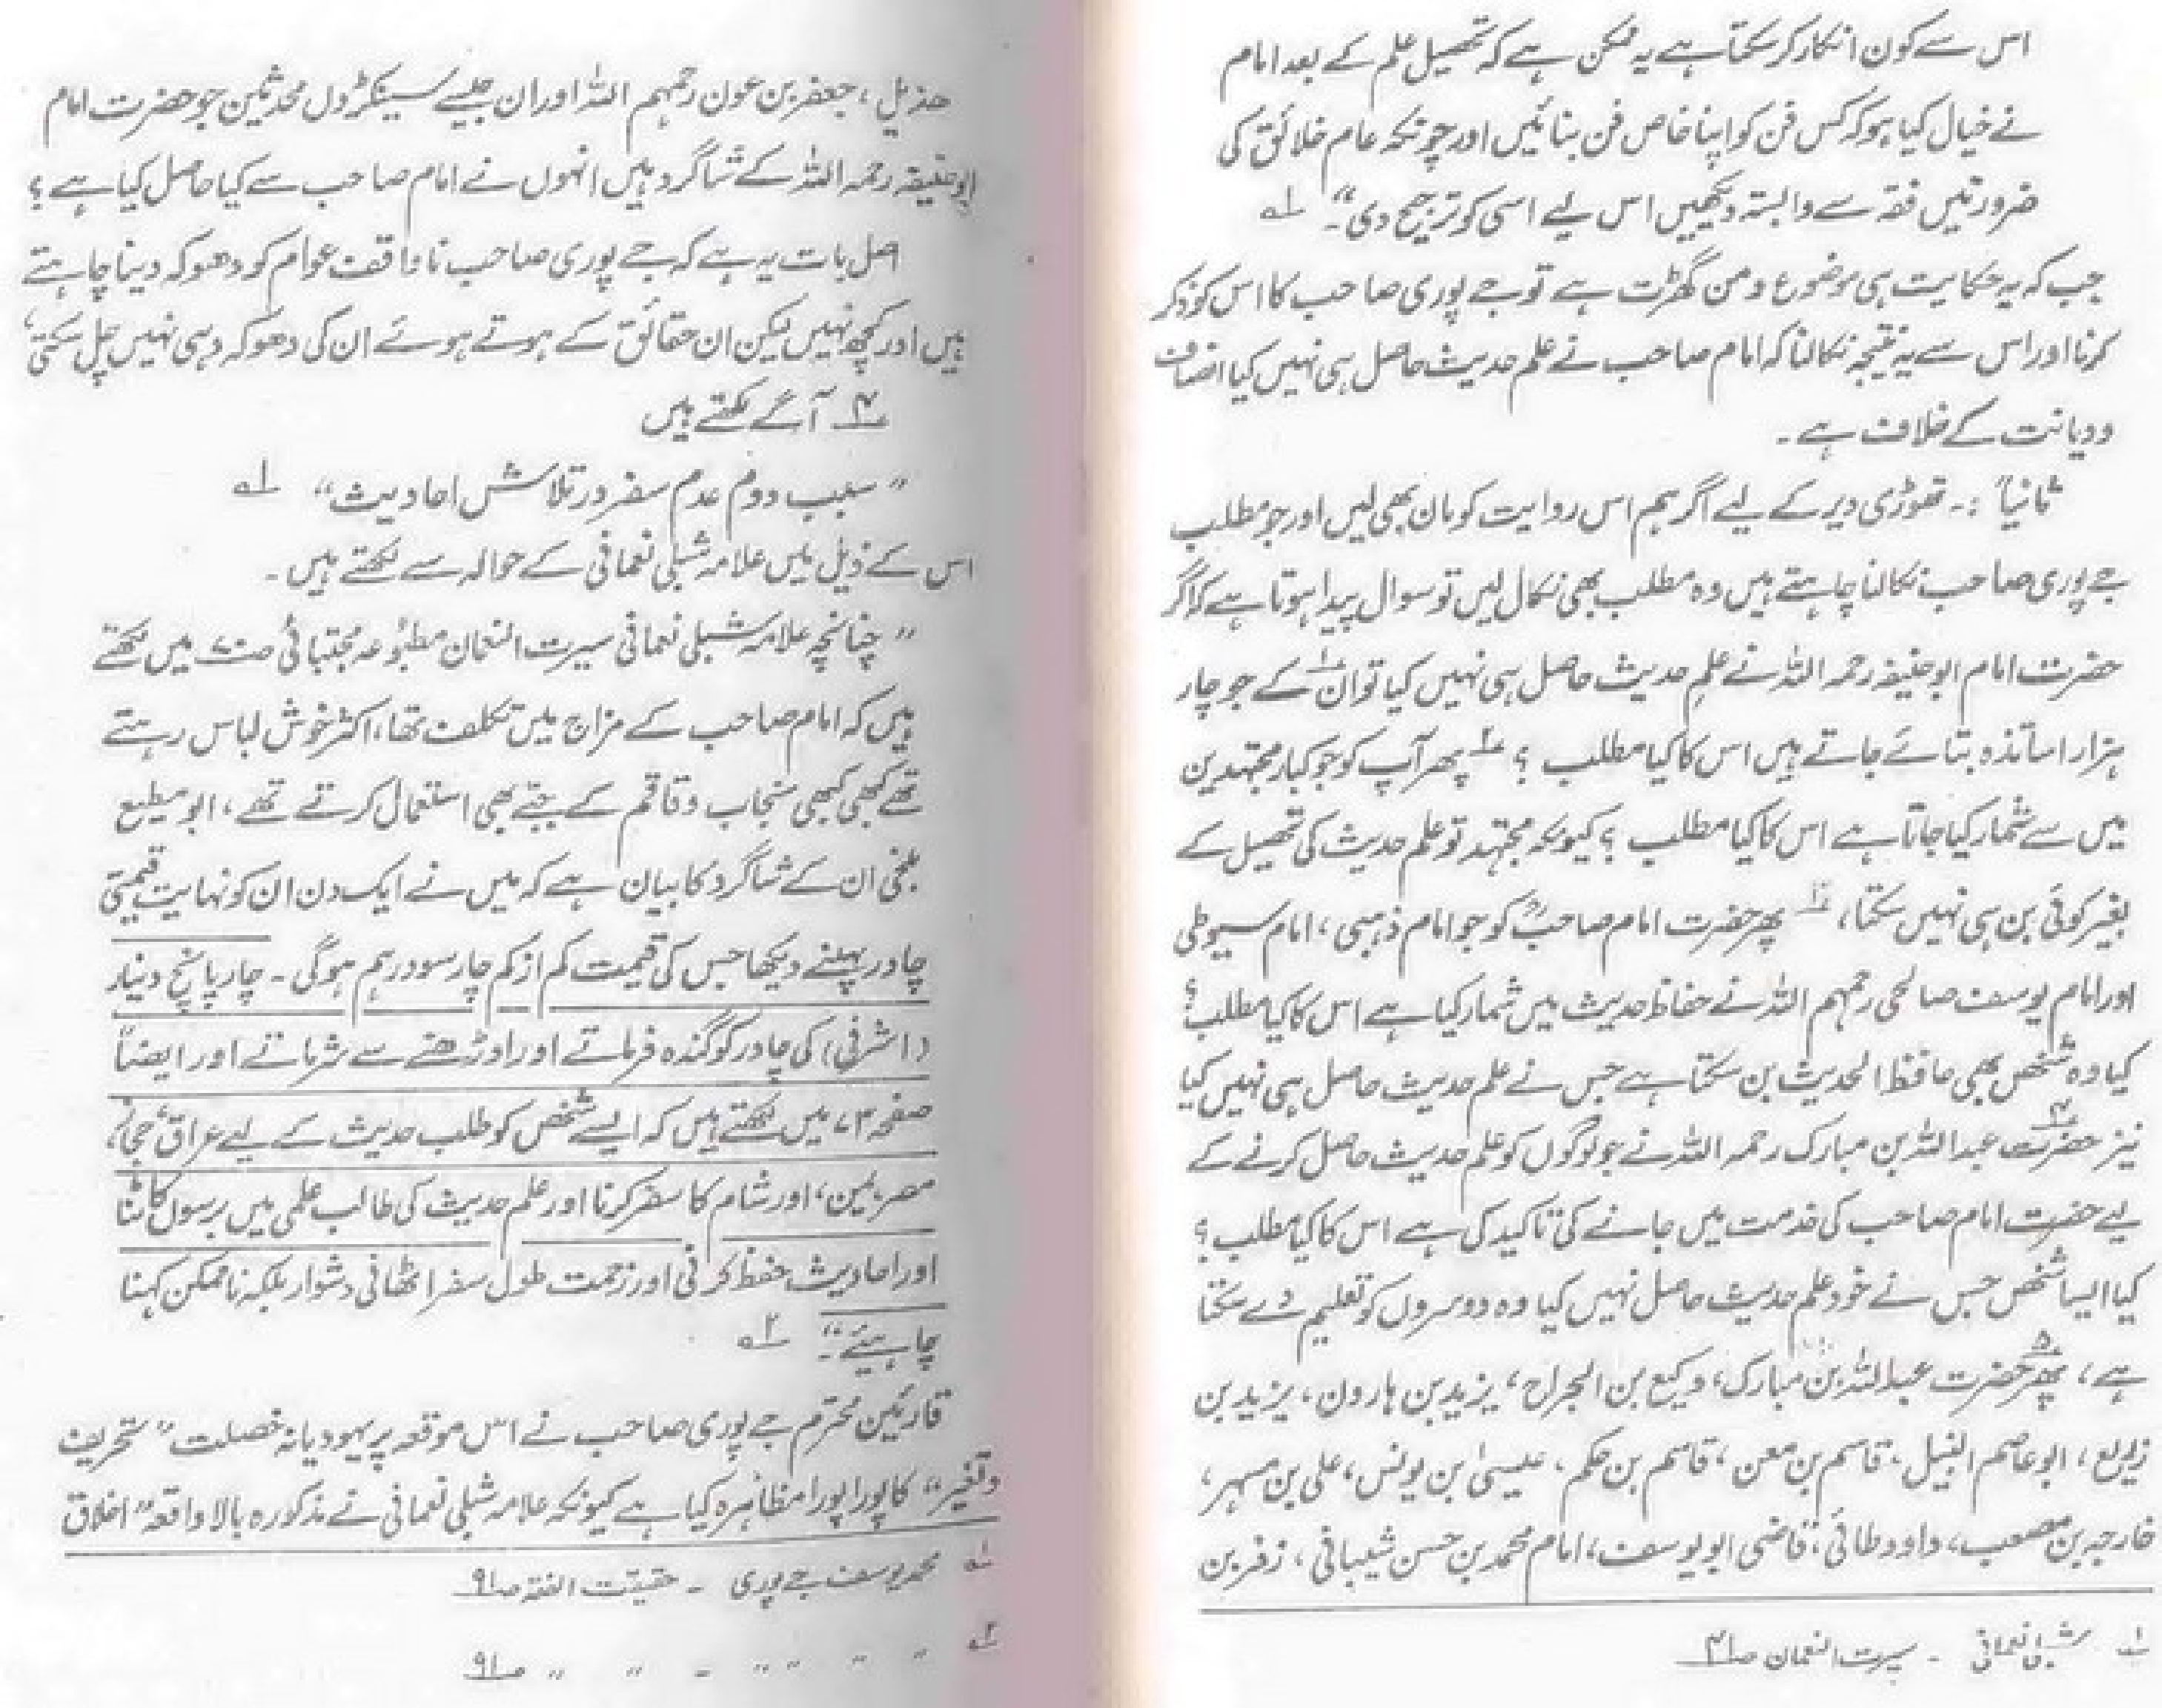 اس سے کون انکار کر سکتا ہے یہ ممکن ہے کہ تحصیل علم کے بعد امام
نے خیال کیا ہو کہ کس فن کو اپنا خاص فن بنائیں اور چونکہ عام خلائق کی
ضرورتیں فقہ سے وابستہ دیکھیں اس لیے اسی کو ترجیح دی"۔ ۱ھ
جب کہ یہ حکایت ہی موضوع و من گھڑت ہے تو جے پوری صاحب کا اس کو ذکر
کرنا اور اس سے یہ نتیجہ نکالنا کہ امام صاحب نے علم حدیث حاصل ہی نہیں کیا انصاف
و دیانت کے خلاف ہے۔
ثانیاً :۔ تھوڑی دیر کے لیے اگر ہم اس روایت کو مان بھی لیں اور جو مطلب
جے پوری صاحب نکالنا چاہتے ہیں وہ مطلب بھی نکال لیں تو سوال پیدا ہوتا ہے کہ اگر
حضرت امام ابوحنیفہ رحمہ اللہ نے علم حدیث حاصل ہی نہیں کیا تو ۱ ان کے جو چار
ہزار اساتذہ بتائے جاتے ہیں اس کا کیا مطلب ؟ ۲ پھر آپ کو جو کبار مجتہدین
میں سے شمار کیا جاتا ہے اس کا کیا مطلب ؟ کیونکہ مجتہد تو علم حدیث کی تحصیل کے
بغیر کوئی بن ہی نہیں سکتا، ۳ پھر حضرت امام صاحبؒ کو جو امام ذہبی، امام سیوطی
اور امام یوسف صالحی رحمہم اللہ نے حفاظ حدیث میں شمار کیا ہے اس کا کیا مطلب؟
کیا وہ شخص بھی حافظ الحدیث بن سکتا ہے جس نے علم حدیث حاصل ہی نہیں کیا
نیز ۴ حضرت عبداللہ بن مبارک رحمہ اللہ نے جو لوگوں کو علم حدیث حاصل کرنے کے
لیے حضرت امام صاحب کی خدمت میں جانے کی تاکید کی ہے اس کا کیا مطلب؟
کیا ایسا شخص جس نے خود علم حدیث حاصل نہیں کیا وہ دوسروں کو تعلیم دے سکتا
ہے، ۵ پھر حضرت عبداللہ بن مبارک، وکیع بن الجراح، یزید بن ہارون، یزید بن
زریع، ابو عاصم النبیل، قاسم بن معن، قاسم بن حکم، عیسیٰ بن یونس، علی بن مسہر،
خارجہ بن مصعب، داود طائی، قاضی ابویوسف، امام محمد بن حسن شیبانی، زفر بن
۱ھ شبلی نعمانی ۔ سیرت النعمان ص۳۱
ھذیل، جعفر بن عون رحمہم اللہ اور ان جیسے سینکڑوں محدثین جو حضرت امام
ابوحنیفہ رحمہ اللہ کے شاگرد ہیں انہوں نے امام صاحب سے کیا حاصل کیا ہے؟
اصل بات یہ ہے کہ جے پوری صاحب ناواقف عوام کو دھوکہ دینا چاہتے
ہیں اور کچھ نہیں لیکن ان حقائق کے ہوتے ہوئے ان کی دھوکہ دہی نہیں چل سکتی،
آگے لکھتے ہیں
"سبب دوم عدم سفر در تلاش احادیث" ۱ھ
اس کے ذیل میں علامہ شبلی نعمانی کے حوالہ سے لکھتے ہیں۔
"چنانچہ علامہ شبلی نعمانی سیرت النعمان مطبوعہ مجتبائی میں لکھتے
ہیں کہ امام صاحب کے مزاج میں تکلف تھا، اکثر خوش لباس رہتے
تھے کبھی کبھی سنجاب و قاقم کے جبّے بھی استعمال کرتے تھے، ابو مطیع
بلخی ان کے شاگرد کا بیان ہے کہ میں نے ایک دن ان کو نہایت قیمتی
چادر پہنے دیکھا جس کی قیمت کم از کم چار سو درہم ہوگی۔ چار پانچ دینار
(اشرفی) کی چادر کو گندہ فرماتے اور اوڑھنے سے شرماتے اور ایضاً
صفحہ ۷۳ میں لکھتے ہیں کہ ایسے شخص کو طلب حدیث کے لیے عراق، حجاز،
مصر، یمن، اور شام کا سفر کرنا اور علم حدیث کی طالب علمی میں برسوں کاٹنا
اور احادیث حفظ کرنی اور زحمت طول سفر اٹھانی دشوار بلکہ ناممکن کہنا
چاہیئے"۔ ۲ھ
قارئین محترم جے پوری صاحب نے اس موقعہ پر یہودیانہ خصلت "تحریف
وتغیر" کا پورا پورا مظاہرہ کیا ہے کیونکہ علامہ شبلی نعمانی نے مذکورہ بالا واقعہ "اخلاق
۱ھ محمد یوسف جے پوری ۔ حقیقت الفقہ ص۹۱
۲ھ " " " " ۔ " " ص۹۱